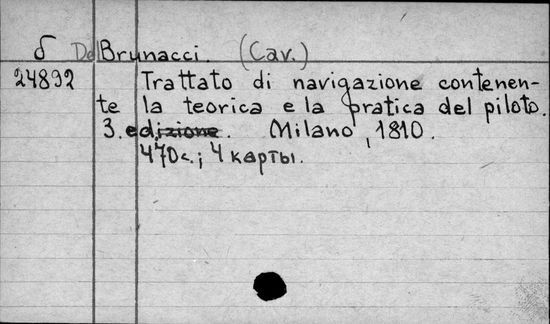 б Del Brunacci. (Cav.)
24892 Trattato di navigazione contenen-
te la teorica e la pratica del piloto.
3. edizione. Milano, 1810.
470с.; 4 карты.